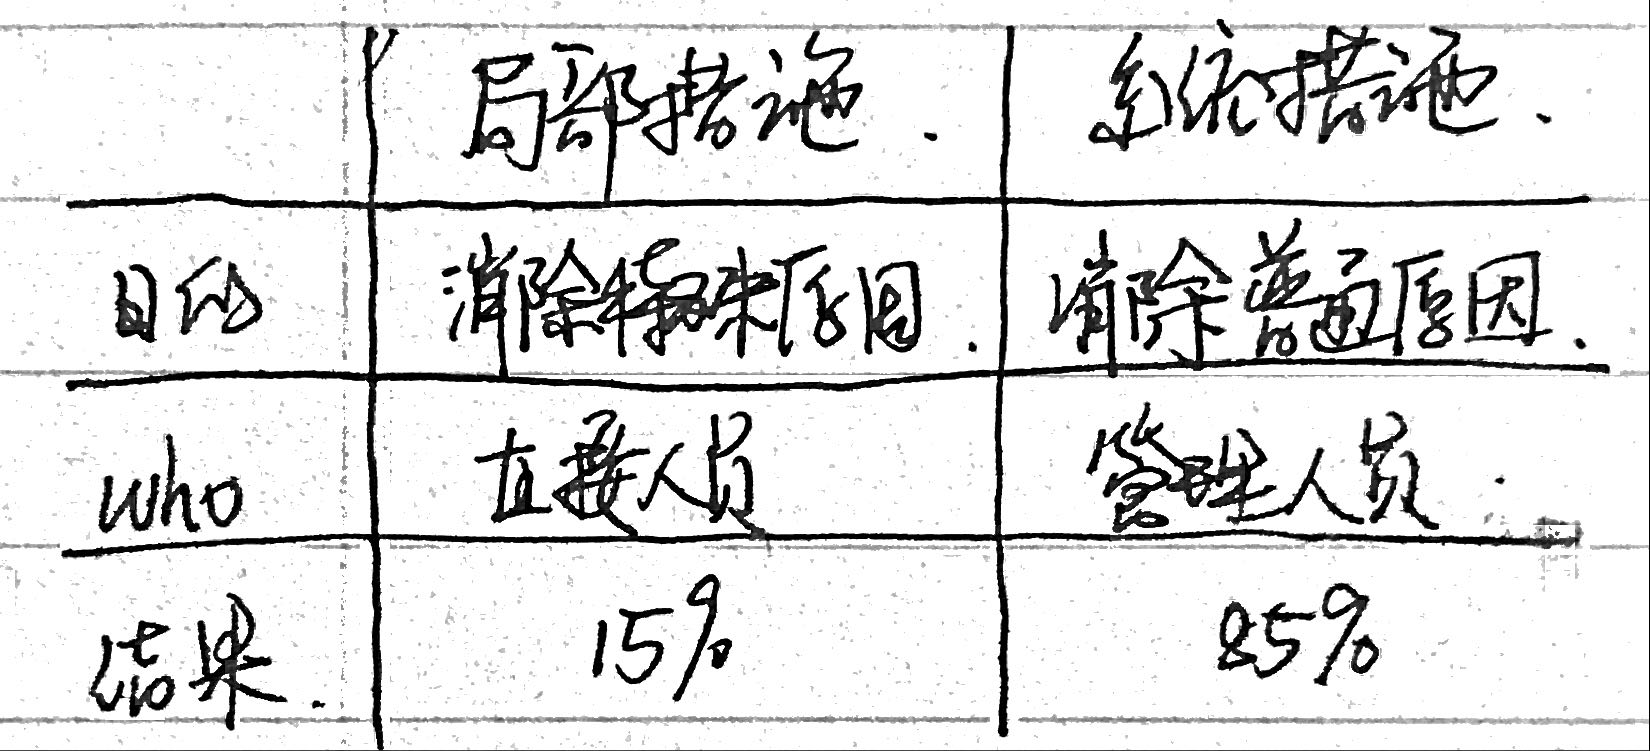 局部措施. 系统措施.
目的 消除特殊原因. 消除普通原因.
who 直接人员 管理人员.
结果. 15% 85%